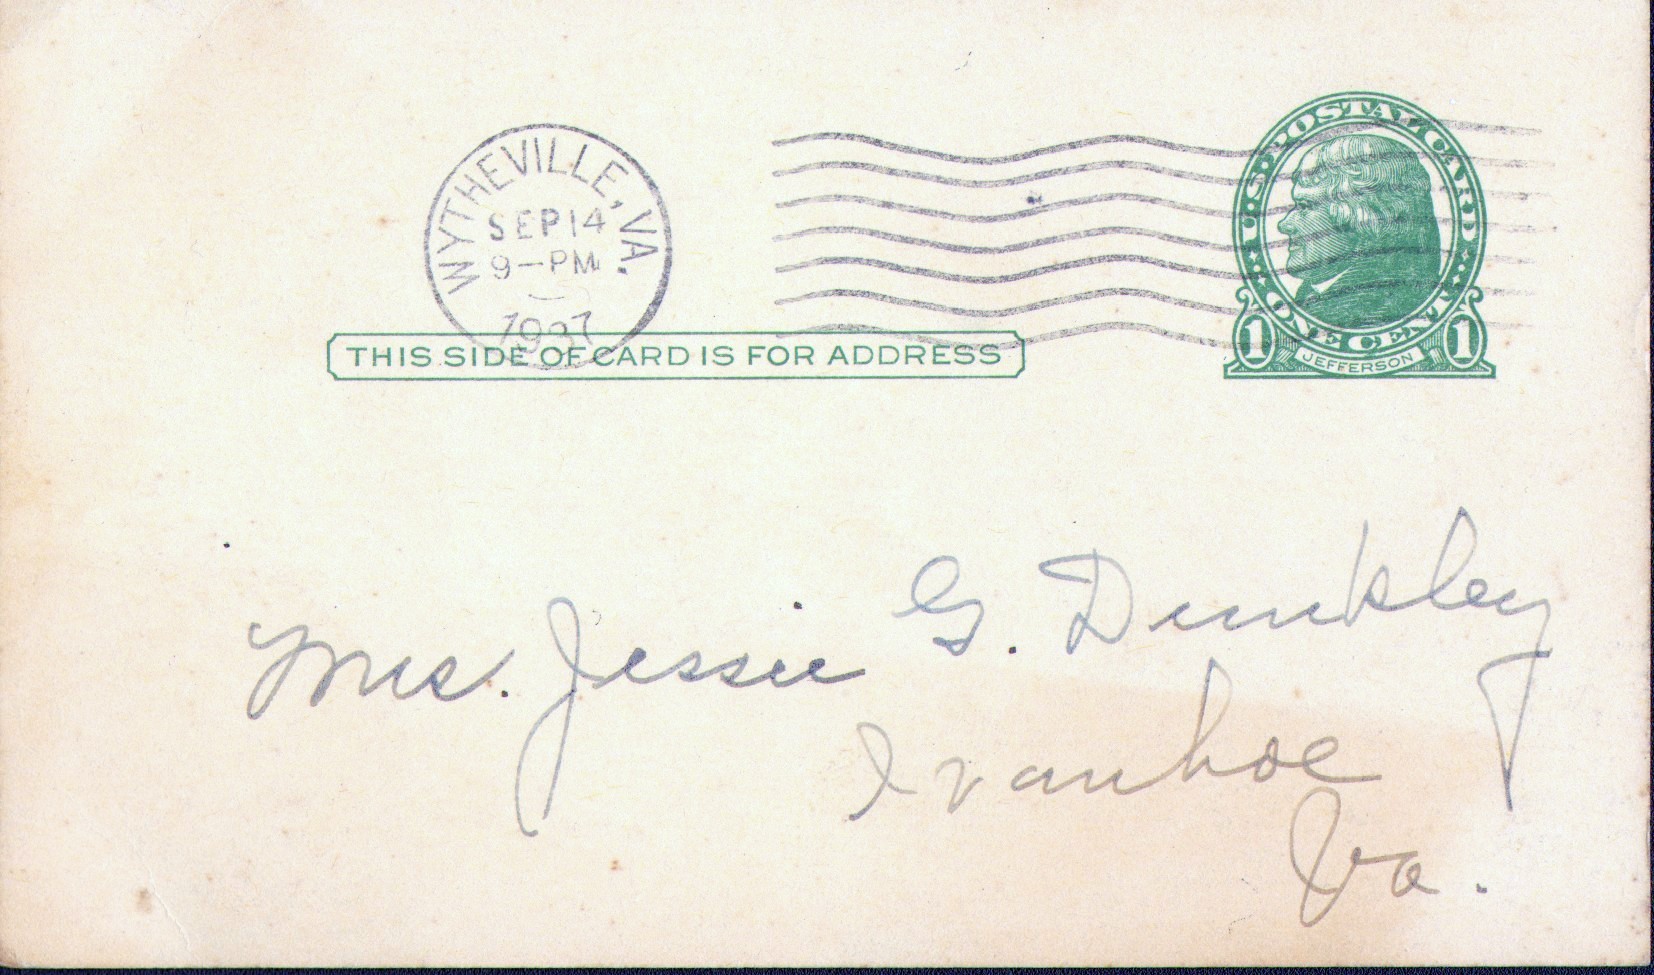 WYTHEVILLE, VA.
SEP 14
9-PM
1937
U.S. POSTAL CARD
ONE CENT
1 JEFFERSON 1
THIS SIDE OF CARD IS FOR ADDRESS
Mrs. Jessie G. Dunkley
Ivanhoe
Va.